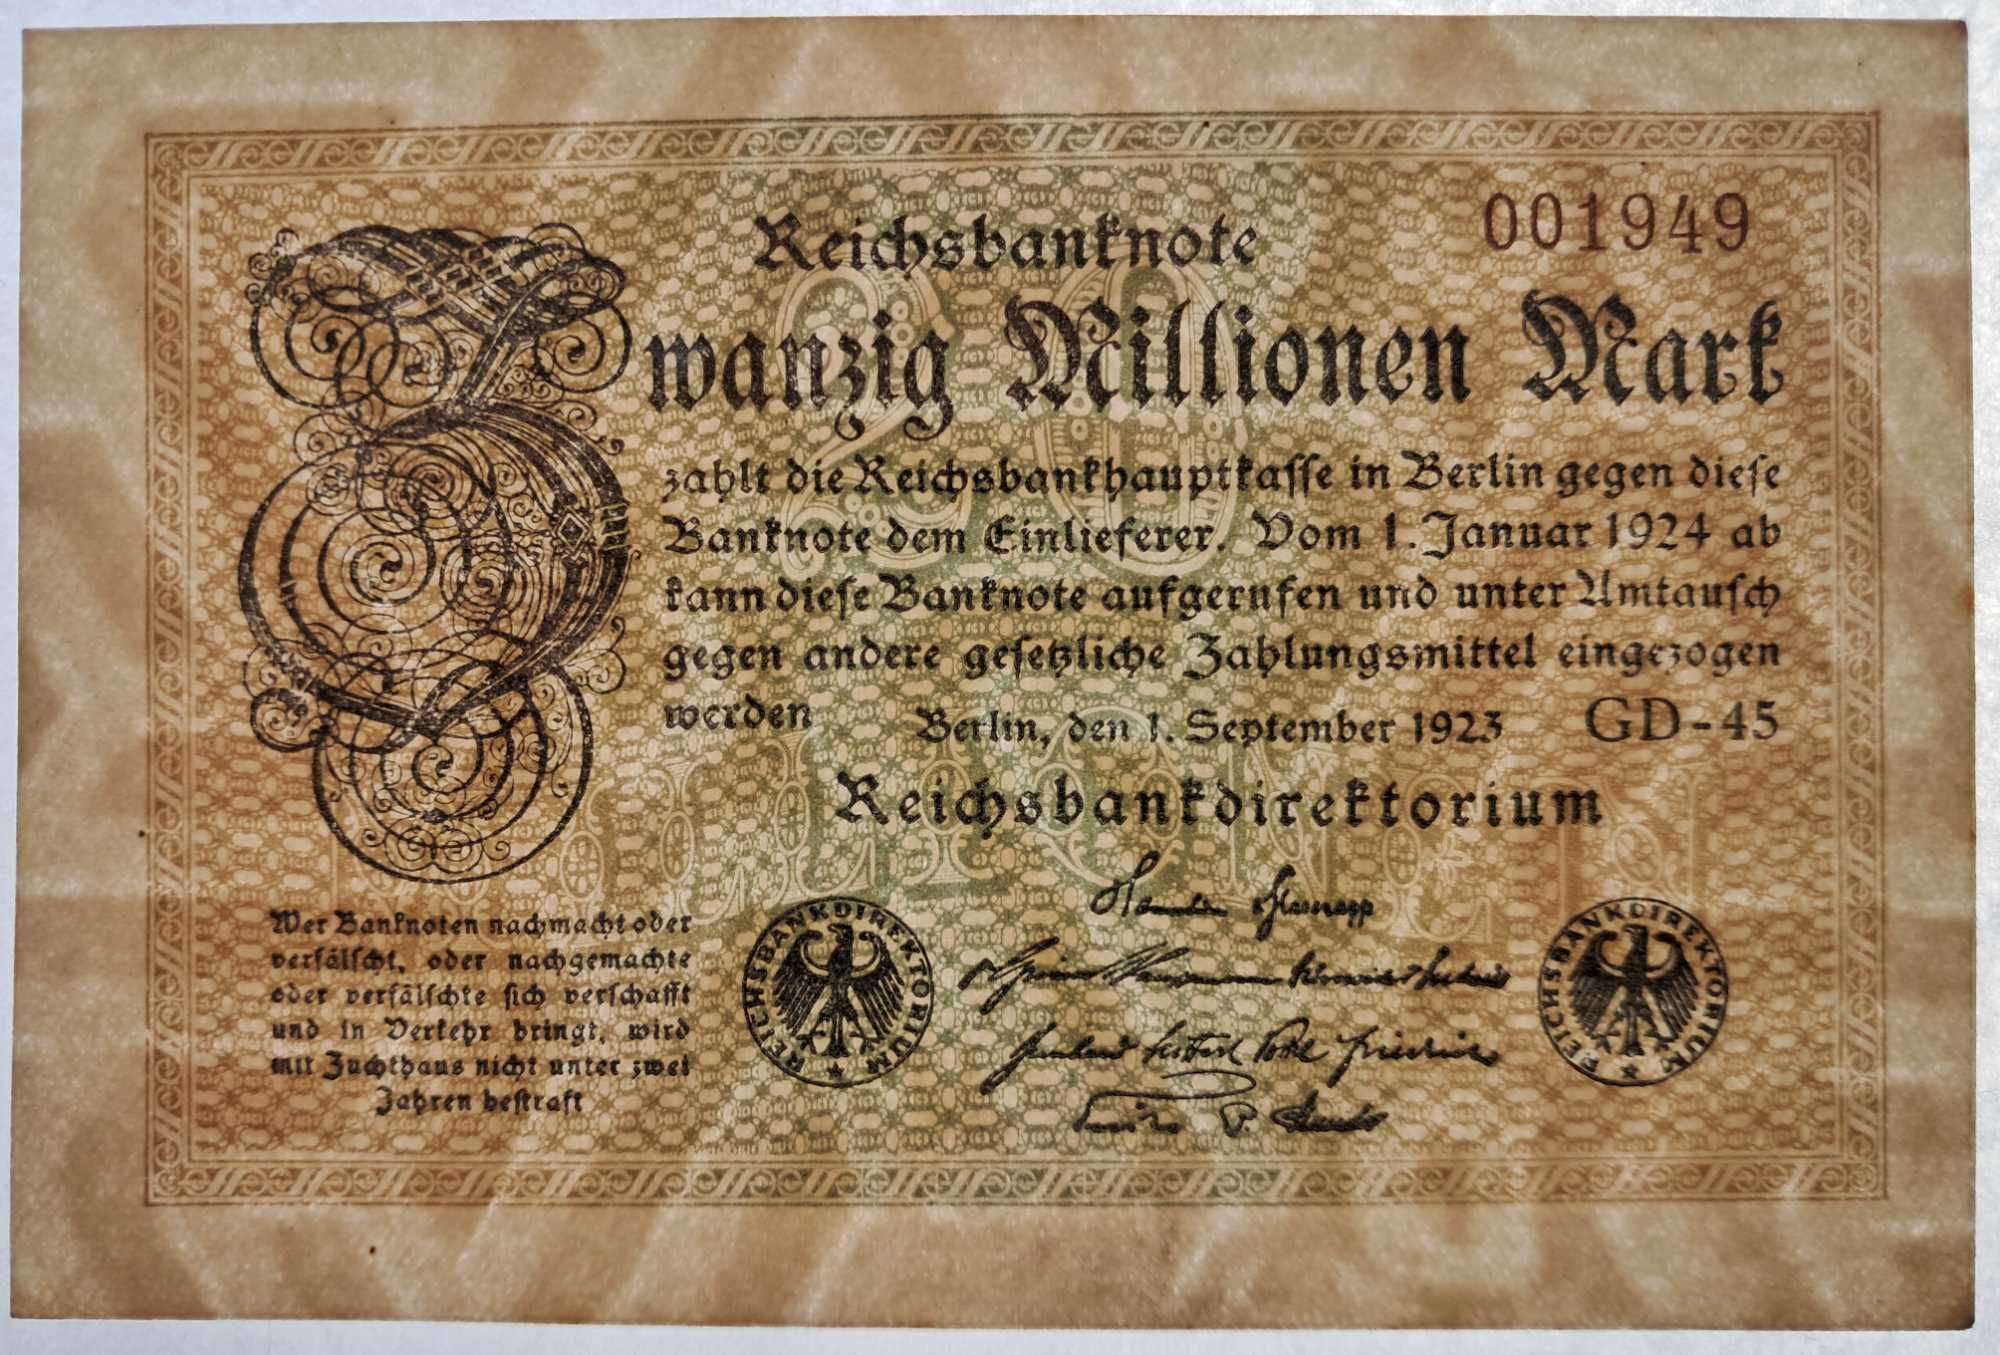 Reichsbanknote
001949
Zwanzig Millionen Mark
20
zahlt die Reichsbankhauptkasse in Berlin gegen diese
Banknote dem Einlieferer. Vom 1. Januar 1924 ab
kann diese Banknote aufgerufen und unter Umtausch
gegen andere gesetzliche Zahlungsmittel eingezogen
werden
Berlin, den 1. September 1923
GD-45
Reichsbankdirektorium
MILLIONEN
Wer Banknoten nachmacht oder
verfälscht, oder nachgemachte
oder verfälschte sich verschafft
und in Verkehr bringt, wird
mit Zuchthaus nicht unter zwei
Jahren bestraft
REICHSBANKDIREKTORIUM
REICHSBANKDIREKTORIUM